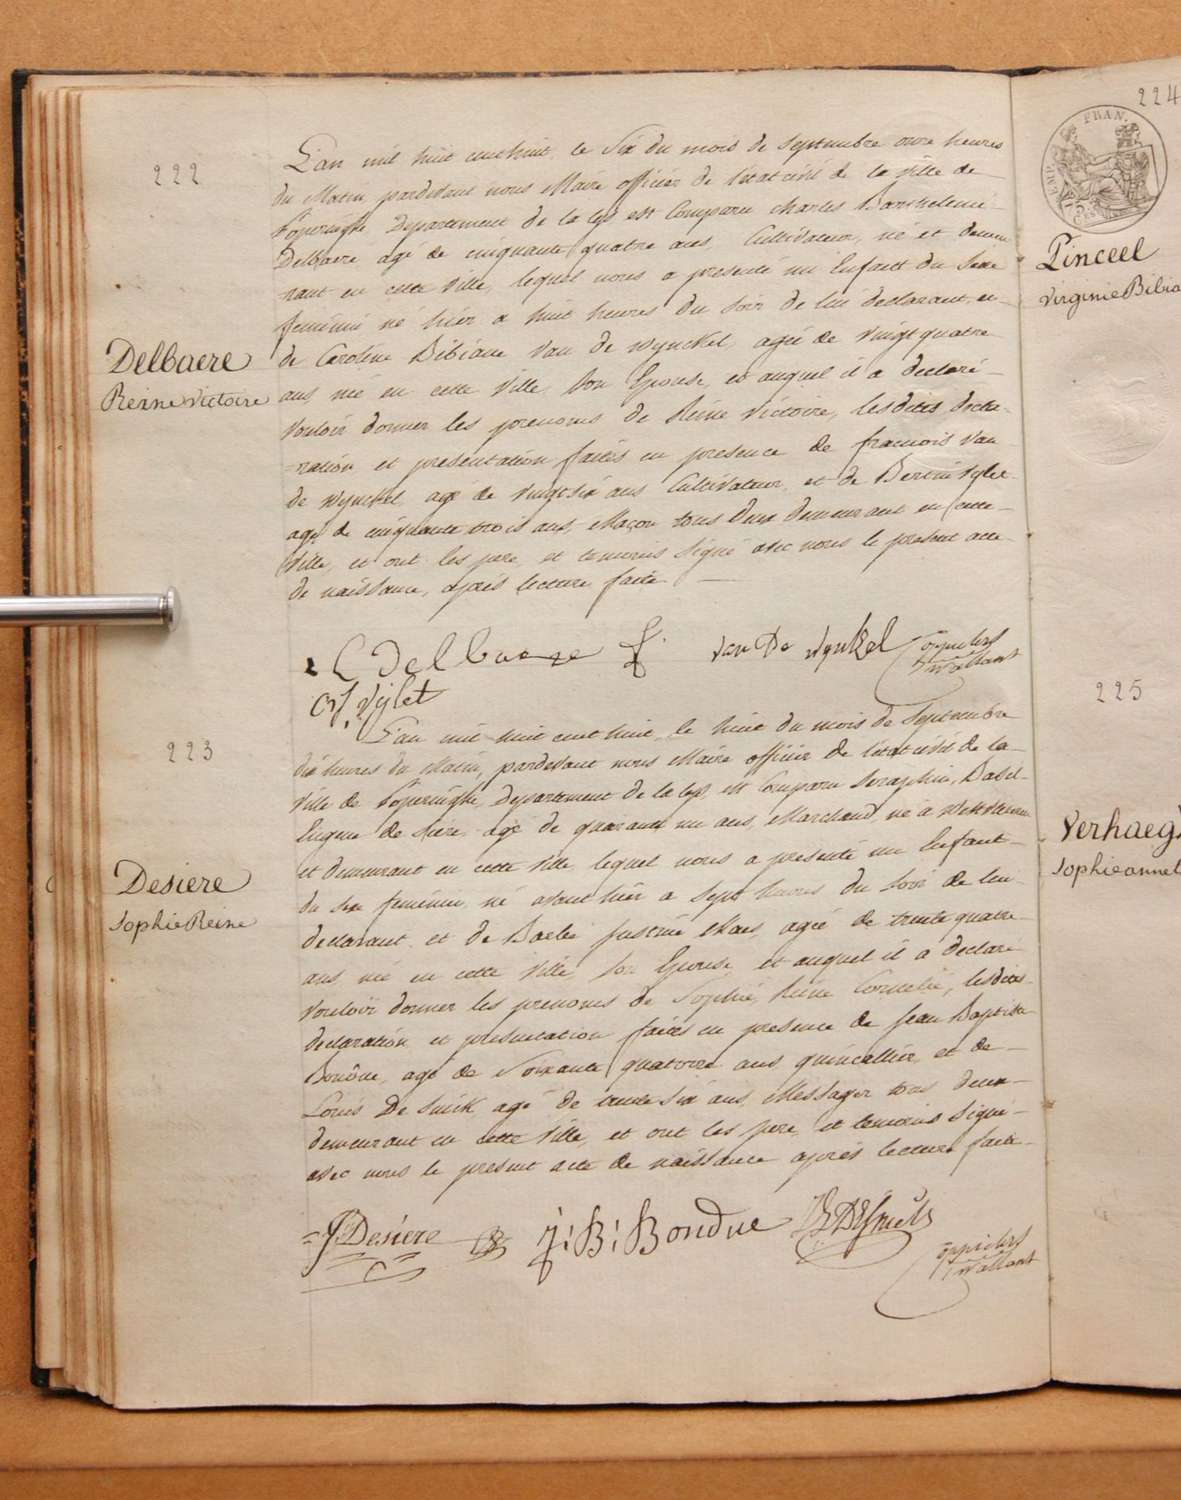 222
Delbaere
Reine Victoire
L'an mil huit cent huit, le Six du mois de Septembre onze heures
du Matin, pardevant nous Maire officier de l'état civil de la Ville de
Poperinghe Departement de la Lys est Comparu Charles Barthelemi
Delbaere agé de cinquante quatre ans, Cultivateur, né et demeu
rant en cette Ville, lequel nous a presenté un Enfant du Sexe
feminin né hier a huit heures du Soir de lui declarant, et
de Caroline Bibiane Van de Wynckel, agée de Vingt quatre
ans, née en cette Ville Son Epouse, et auquel il a declaré
Vouloir donner les prenoms de Reine Victoire, lesdites decla
ration et presentation faites en presence de francois Van
de Wynckel, age de Vingt six ans Cultivateur, et de Bertin Vylet
agé de cinquante trois ans, Maçon tous deux demeurant en cette
Ville, et ont les pere, et temoins Signé avec nous le present acte
de naissance, après lecture faite
C Delbaere f. van De Wynkel
Vylet
223
Desiere
Sophie Reine
L'an mil huit cent huit, le huit du mois de Septembre
dix heures du Matin, pardevant nous Maire officier de l'état civil de la
Ville de Poperinghe, Departement de la Lys, est Comparu Seraphin, Basil
Eugene de Siere agé de quarante un ans, Marchand né à
et demeurant en cette Ville lequel nous a presenté un Enfant
du Sexe feminin né avant hier a Sept heures du Soir de lui
declarant, et de Barbe Justine Maes, agée de trente quatre
ans, née en cette Ville Son Epouse, et auquel il a declaré
Vouloir donner les prenoms de Sophie, Reine Cornelie, lesdites
declaration, et presentation faites en presence de Jean Baptiste
Bondue, agé de Soixante quatorze ans, quincallier, et de
Louis De Smit, agé de trente six ans, Messager tous deux
demeurant en cette Ville, et ont les pere, et temoins Signé
avec nous le present acte de naissance après lecture faite
Desiere J: B: Bondue
224
EMP. FRAN.
Pinceel
Virginie Bibia
225
Verhaegh
Sophie annel